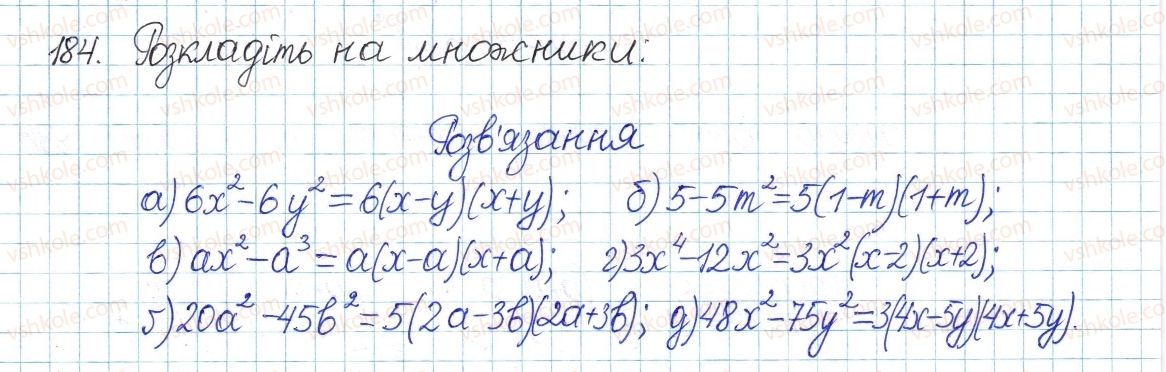 184. Розкладіть на множники:
Розв'язання
а) 6x² - 6y² = 6(x-y)(x+y); б) 5 - 5m² = 5(1-m)(1+m);
в) ax² - a³ = a(x-a)(x+a); г) 3x⁴ - 12x² = 3x²(x-2)(x+2);
ґ) 20a² - 45b² = 5(2a-3b)(2a+3b); д) 48x² - 75y² = 3(4x-5y)(4x+5y).